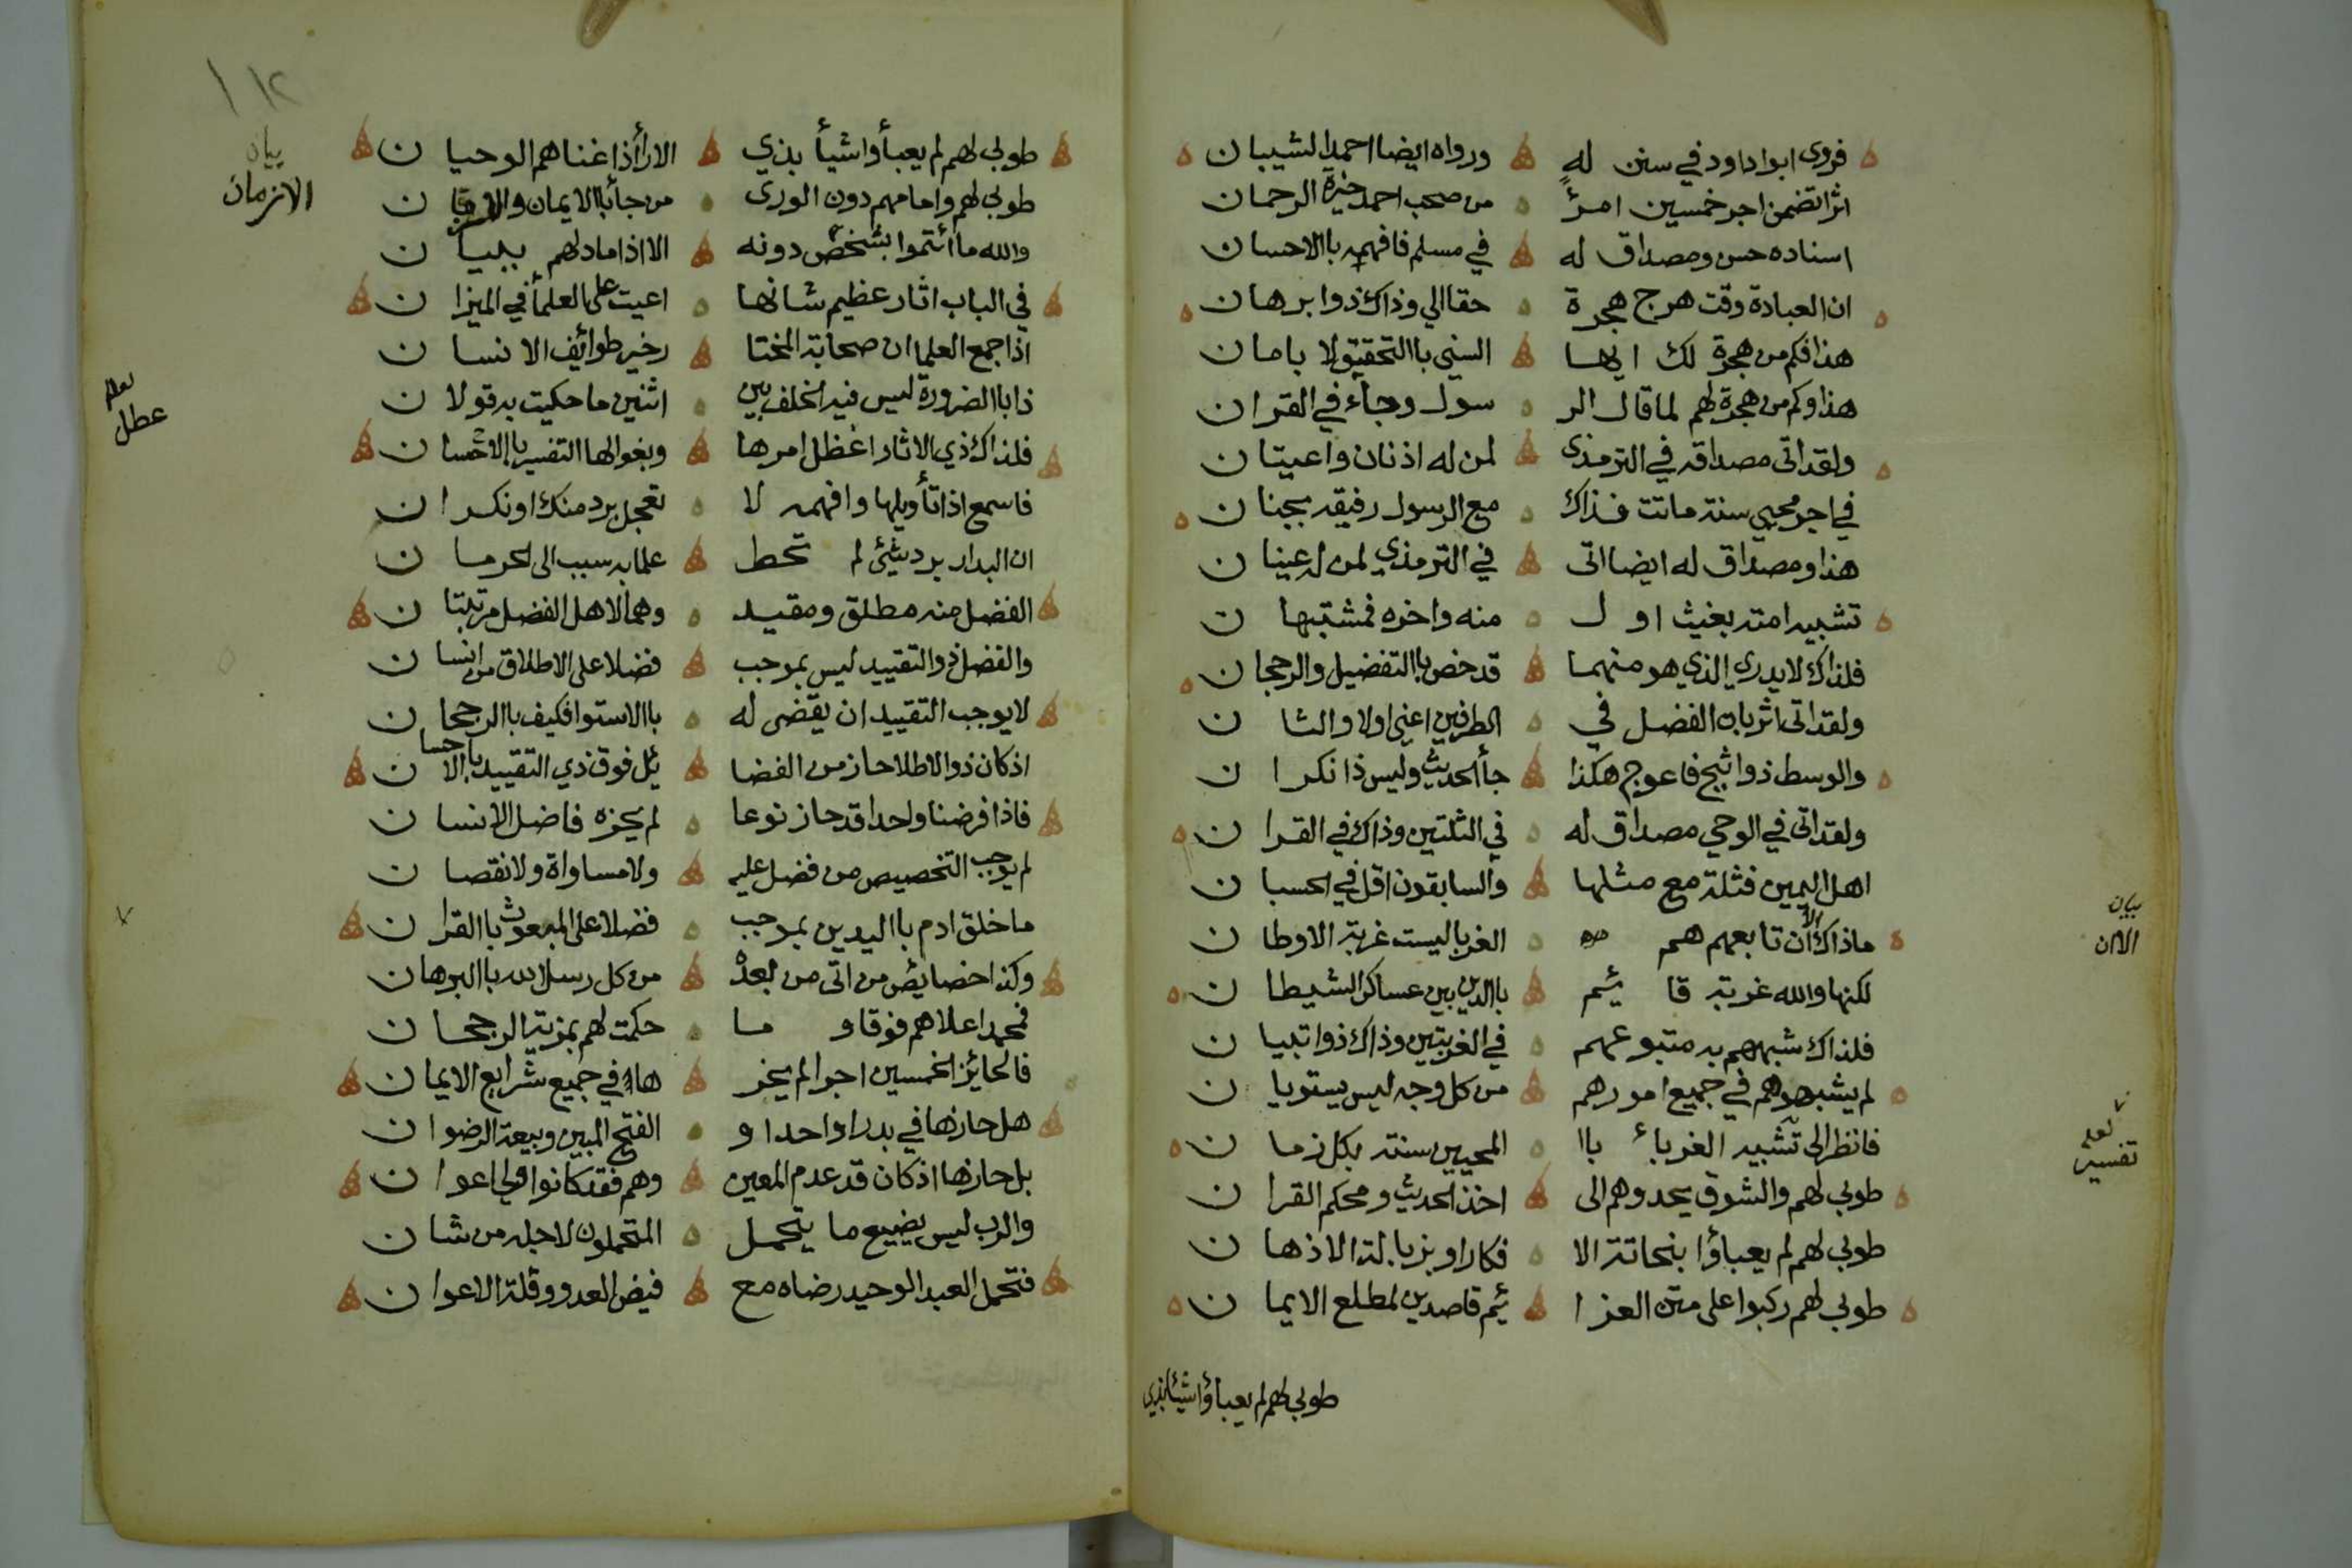 فروى ابوا داود في سنن له ورواه ايضا احمد الشيبان
اثرا تضمن اجر خمسين امرئ من صحب احمد خيرة الرحمان
اسناده حسن ومصداق له في مسلم فافهمه باالاحسان
ان العبادة وقت هرج هجرة حقا الي وذاك ذوا برهان
هذا فكم من هجرة لك ايها السني باالتحقيق لا بامان
هذا وكم من هجرة لهم لما قال الر سول وجاء في القران
ولقد اتى مصداقه في الترمذي لمن له اذنان واعيتان
في اجر محيي سنة ماتت فذاك مع الرسول رفيقه بجنان
هذا ومصداق له ايضا اتى في الترمذي لمن له عينان
تشبيه امته بغيث اول منه واخره فمشتبهان
فلذاك لا يدري الذي هو منهما قد خص باالتفضيل والرجحان
ولقد اتى اثر بان الفضل في الطرفين اعني اولا والثان
والوسط ذوا ثبج فاعوج هكذا جأ الحديث وليس ذا نكران
ولقد اتى في الوحي مصداق له في الثلتين وذاك في القران
اهل اليمين فثلة مع مثلها والسابقون اقل في الحسبان
ماذاك الا ان تابعهم هم الغربا ليست غربة الاوطان
لكنها والله غربة قائم باالدين بين عساكر الشيطان
فلذاك شبههم به متبوعهم في الغربتين وذاك ذوا تبيان
لم يشبهوهم في جميع امورهم من كل وجه ليس يستويان
فانظر الى تشبيه الغرباء باا المحيين سنته بكل زمان
طوبى لهم والشوق يحدوهم الى اخذ الحديث ومحكم القران
طوبى لهم لم يعباؤا بنحاتة الا فكار او بزبالة الاذهان
طوبى لهم ركبوا على متن العزا ئم قاصدين لمطلع الايمان
طوبى لهم لم يعباؤا شيئا بذي
بيان
الاان
لعله
تفسير
طوبى لهم لم يعبأوا شيأ بذي الارأ اذ اغناهم الوحيان
طوبى لهم وامامهم دون الورى من جأ باالايمان
والله ما ائتموا بشخص دونه الا اذا ما دلهم ببيان
في الباب اثار عظيم شانها اعيت على العلمأ في الميزان
اذ اجمع العلما ان صحابة المختا ر خير طوائف الانسان
ذا باالضرورة ليس فيه الخلف بين اثنين ما حكيت به قولان
فلذاك ذي الاثار اعظل امرها وبغوا لها التفسير باالاحسان
فاسمع اذا تأويلها وافهمه لا تعجل برد منك او نكران
ان البدار برد شيئ لم تحط علما به سبب الى الحرمان
الفضل منه مطلق ومقيد وهما لاهل الفضل مرتبتان
والفضل ذو التقييد ليس بموجب فضلا على الاطلاق من انسان
لا يوجب التقييد ان يقضى له باالاستوا فكيف باالرجحان
اذ كان ذوا الاطلا حاز من الفضا ئل فوق ذي التقييد باالاحسان
فاذا فرضنا واحدا قد حاز نوعا لم يحزه فاضل الانسان
لم يوجب التخصيص من فضل عليه ولا مساواة ولا نقصان
ما خلق ادم باليدين بموجب فضلا على المبعوث باالقران
وكذا خصايص من اتى من بعده من كل رسل الله باالبرهان
فمحمد اعلاهم فوقا وما حكمت لهم بمزية الرجحان
فالحائز الخمسين اجرا لم يحز ها في جميع شرايع الايمان
هل حازها في بدر او احد او الفتح المبين وبيعة الرضوان
بل حازها اذ كان قد عدم المعين وهم فقد كانوا اولي اعوان
والرب ليس يضيع ما يتحمل المتحملون لاجله من شان
فتحمل العبد الوحيد رضاه مع فيض العدو وقلة الاعوان
١١٢
بيان
الازمان
لعله
عطل